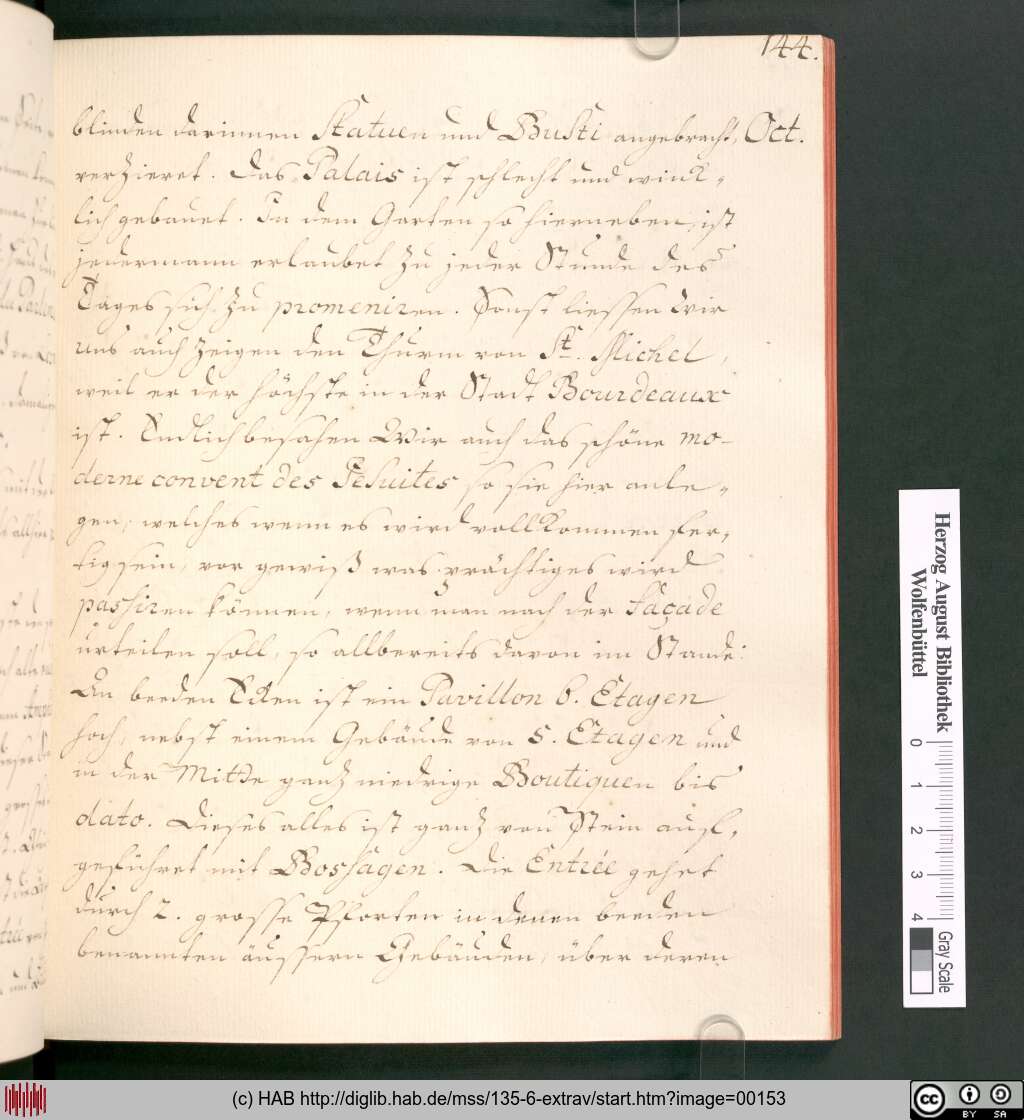 144.
blinden darinnen Statuen und Busti angebracht, Oct.
verzieret. Das Palais ist schlecht und wink-
lich gebauet. In dem Garten so hierneben, ist
jedermann erlaubet zu jeder Stunde des
Tages sich zu promeniren. Sonst liessen Wir
uns auch zeigen den Thurm von St. Michel,
weil er der höchste in der Stadt Bourdeaux
ist. Endlich besahen Wir auch das schöne mo-
derne convent des Jesuites so sie hier anle-
gen, welches wenn es wird vollkommen fer-
tig sein, vor gewiß was prächtiges wird
passiren können, wenn man nach der façade
urteilen soll, so allbereits davon im Stande:
An beeden Ecken ist ein Pavillon 6. Etagen
hoch, nebst einem Gebäude von 5. Etagen und
in der Mitte ganz niedrige Boutiquen bis
dato. Dieses alles ist ganz von Stein auf-
geführet mit Bossagen. Die Entrée gehet
durch 2. grosse Pforten in denen beeden
benannten äussern Gebäuden, über deren
Herzog August Bibliothek
Wolfenbüttel
0 1 2 3 4
Gray Scale
(c) HAB http://diglib.hab.de/mss/135-6-extrav/start.htm?image=00153
cc BY SA